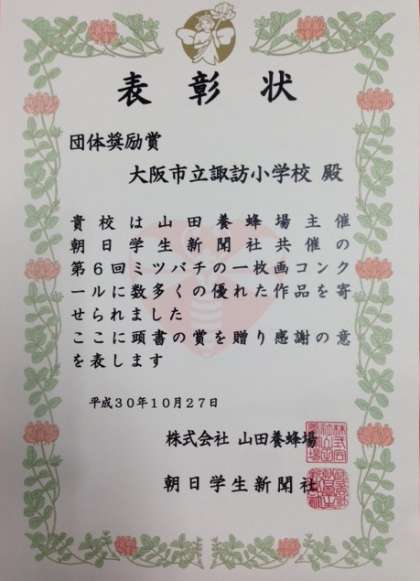 表彰状
団体奨励賞
大阪市立諏訪小学校 殿
貴校は山田養蜂場主催
朝日学生新聞社共催の
第6回ミツバチの一枚画コンク
ールに数多くの優れた作品を寄
せられました
ここに頭書の賞を贈り感謝の意
を表します
平成30年10月27日
株式会社 山田養蜂場
朝日学生新聞社